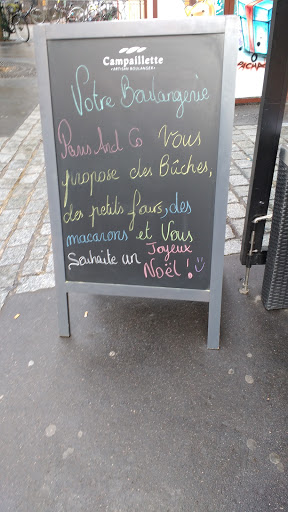 Campaillette
ARTISAN BOULANGER
Votre Boulangerie
Paris And Co Vous
propose des Bûches,
des petits fours, des
macarons et Vous
Souhaite un Joyeux
Noël !